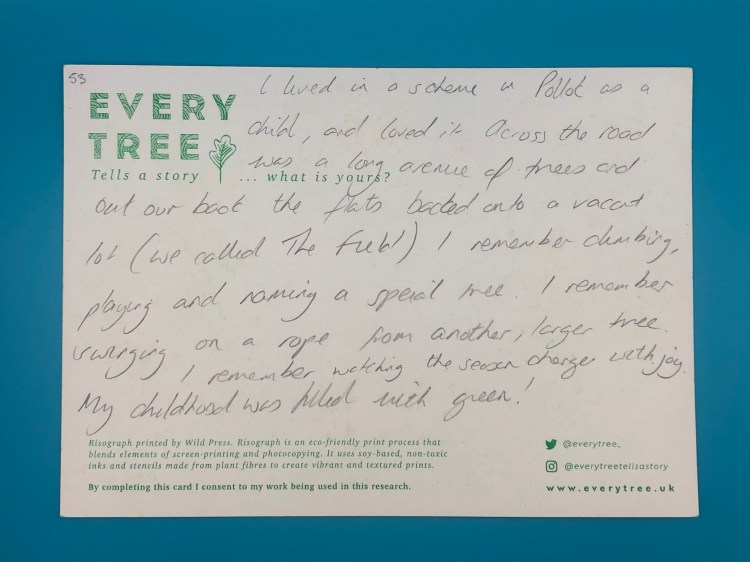 53
EVERY
TREE
Tells a story ... what is yours?
I lived in a scheme in Pollok as a
child, and loved it. Across the road
was a long avenue of trees and
out our back the flats backed onto a vacant
lot (we called The Field) I remember climbing,
playing and naming a special tree. I remember
swinging on a rope from another, larger tree.
I remember watching the season change with joy.
My childhood was filled with green!
Risograph printed by Wild Press. Risograph is an eco-friendly print process that
blends elements of screen-printing and photocopying. It uses soy-based, non-toxic
inks and stencils made from plant fibres to create vibrant and textured prints.
By completing this card I consent to my work being used in this research.
@everytree_
@everytreetellsastory
www.everytree.uk